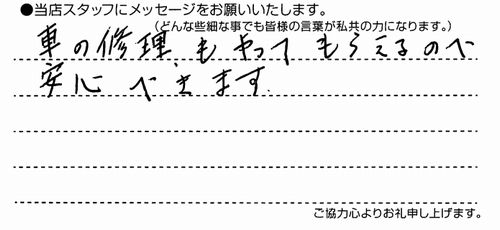 ●当店スタッフにメッセージをお願いいたします。
(どんな些細な事でも皆様の言葉が私共の力になります。)
車の修理もやってもらえるので
安心できます。
ご協力心よりお礼申し上げます。